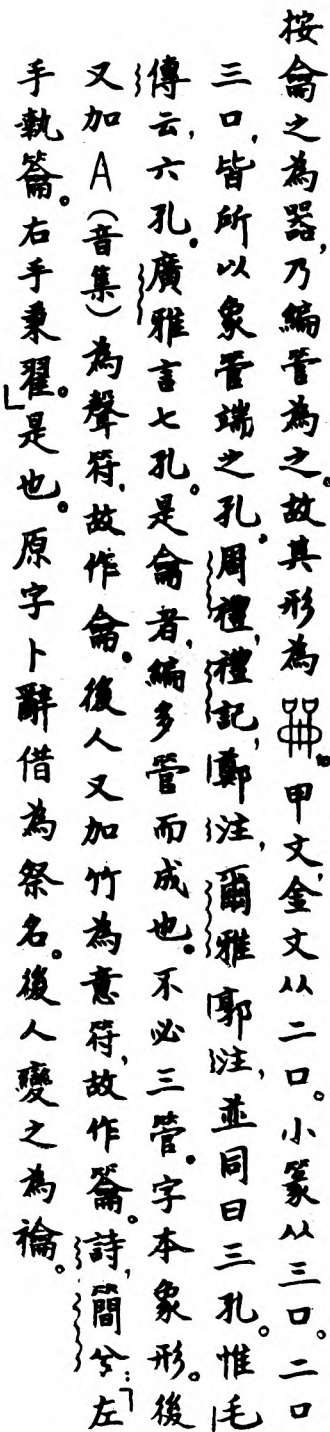 按龠之為器,乃編管為之。故其形為。甲文,金文从二口。小篆从三口。二口
三口,皆所以象管端之孔。周禮,禮記,鄭注,爾雅郭注,並同曰三孔。惟毛
傳云,六孔。廣雅言七孔。是龠者,編多管而成也。不必三管。字本象形。後
又加A(音集)為聲符,故作龠。後人又加竹為意符,故作籥。詩,簡兮:「左
手執籥。右手秉翟。」是也。原字卜辭借為祭名。後人變之為禴。